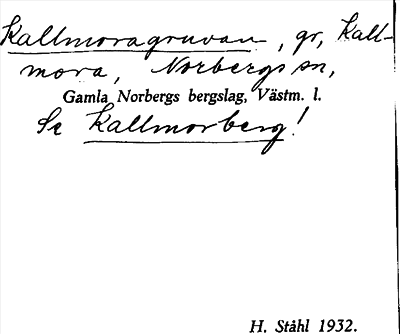 Kallmoragruvan, gr, Kall-
mora, Norbergs sn,
Gamla Norbergs bergslag, Västm. l.
Se Kallmorberg!
H. Ståhl 1932.